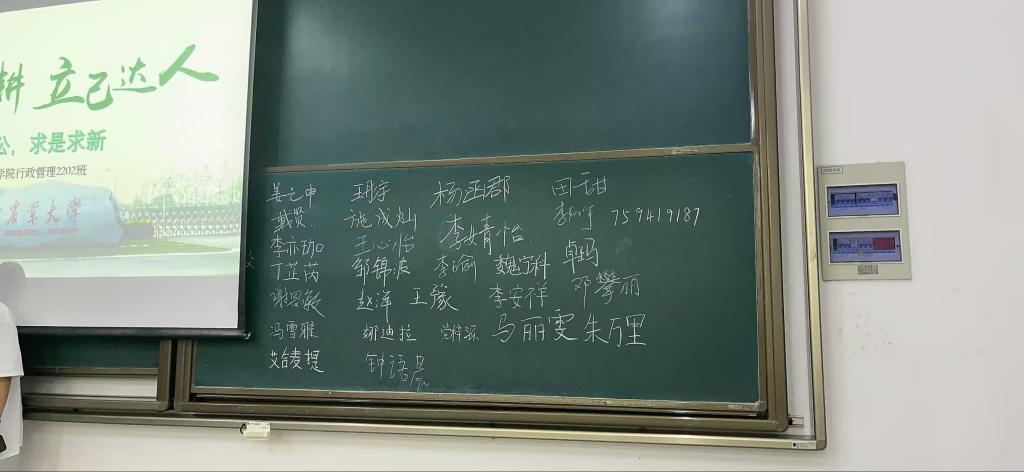 耕 立己达人
公，求是求新
学院行政管理2202班
农业大学
姜之申 王玥宇 杨函郡 田甜
戴贤 施成灿 李婧怡 759419187
李亦珈 王心怡
丁芷芮 邹锦波 李瑜 魏宁科 卓玛
谢思敏 赵洋 王豫 李安祥 邓攀丽
冯雪雅 娜迪拉 马丽雯 朱万里
艾合麦提 钟语晨